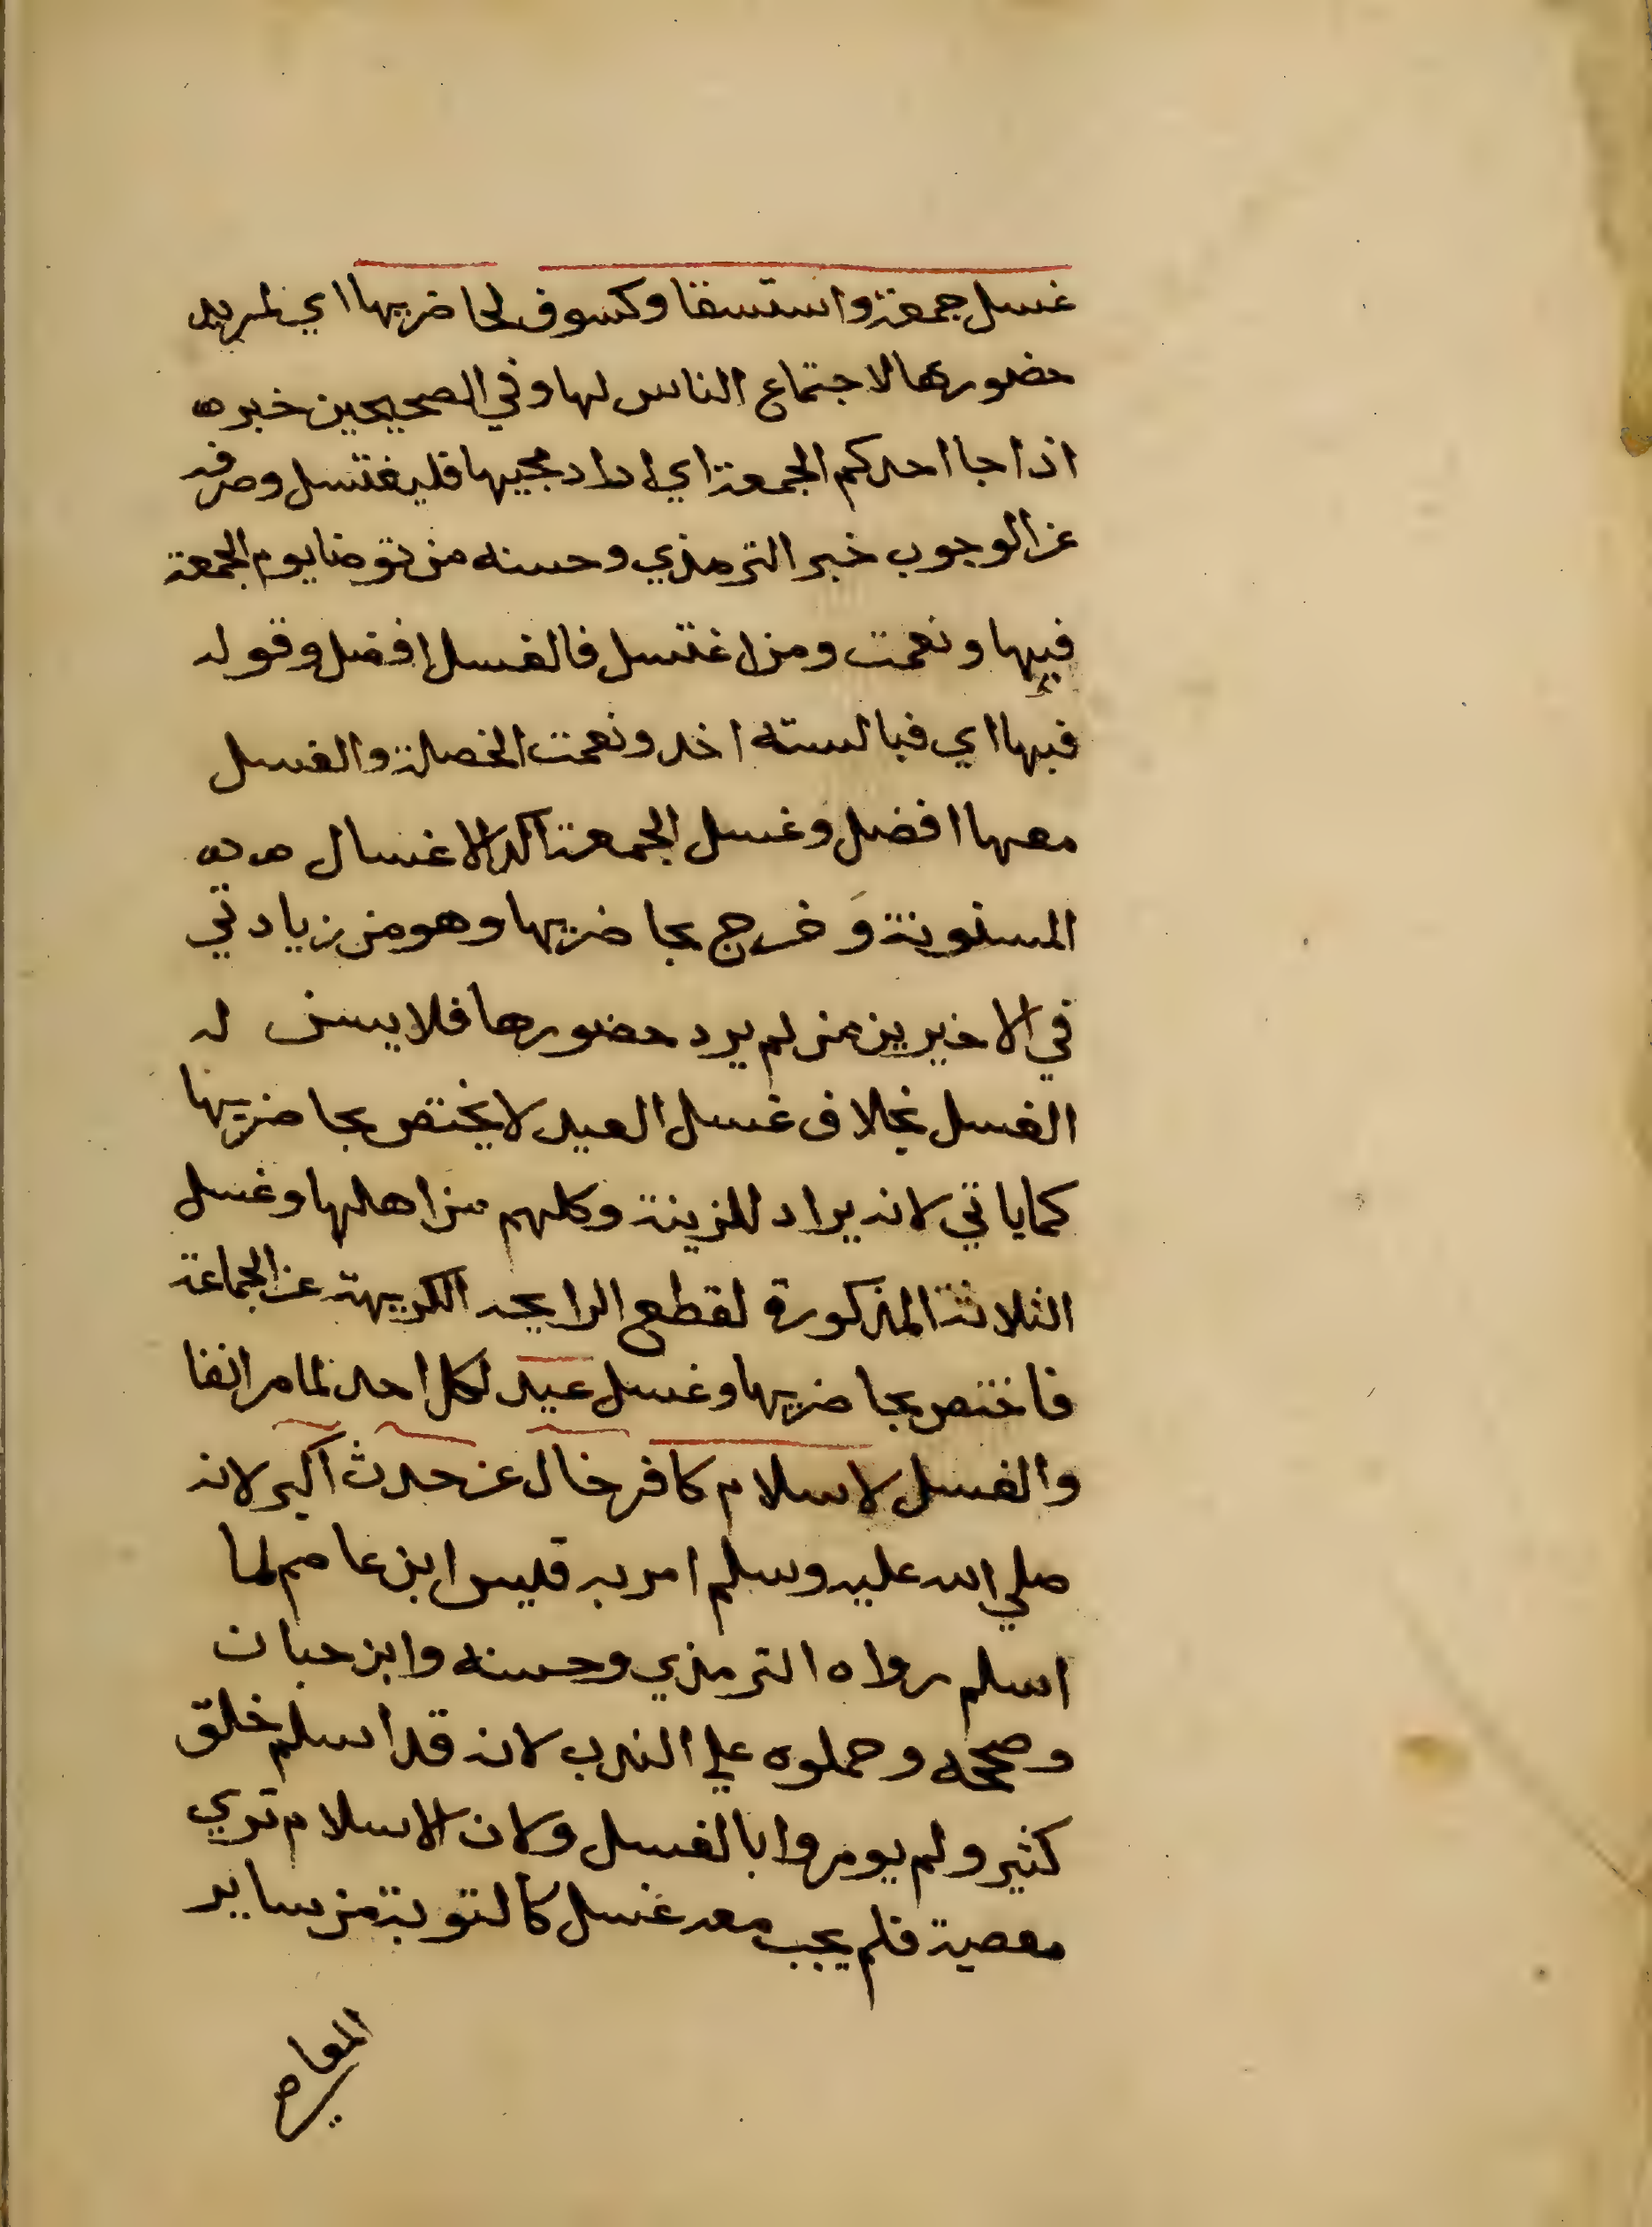 غسل جمعة واستسقا وكسوف لحاضريها اي لمريد
حضورها لاجتماع الناس لها وفي الصحيحين خبر ه
اذا جا احدكم الجمعة اي اراد مجيها فليغتسل وصرفه
عن الوجوب خبر الترمذي وحسنه من توضا يوم الجمعة
فبها ونعمت ومن اغتسل فالغسل افضل وقوله
فبها اي فبالسنه اخد ونعمت الخصلة والغسل
معها افضل وغسل الجمعة اكد الاغسال ه ه
المسنونة وَخرج بحاضريها وهو من زيادتي
في الاخيرين من لم يرد حضورها فلا يسن له
الغسل بخلاف غسل العيد لا يختص بحاضريها
كما ياتي لانه يراد للزينة وكلهم من اهلها وغسل
الثلاثة المذكورة لقطع الرايحه الكريهة عن الجماعة
فاختص بحاضريها وغسل عيد لكل احد لما مر انفا
والغسل لاسلام كافر خال عن حدث اكبر لانه
صلي الله عليه وسلم امر به قيس ابن عاصم لما
اسلم رواه الترمذي وحسنه وابن حبان
وصححه وحملوه علي الندب لانه قد اسلم خلق
كثير ولم يومروا بالغسل ولان الاسلام توبي
معصية فلم يجب معه غسل كالتوبة من ساير
المعاصي